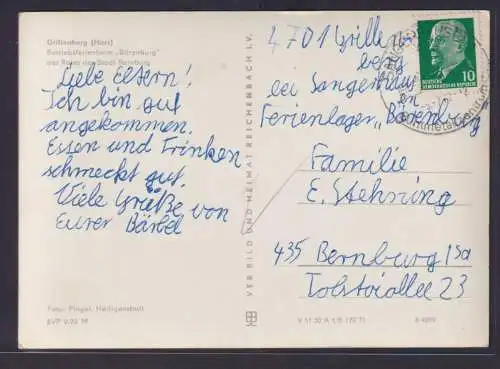 Grillenberg (Harz)
Betriebsferienheim „Bärenburg"
des Rates der Stadt Bernburg
Liebe Eltern!
Ich bin gut
angekommen.
Essen und Trinken
schmeckt gut.
Viele Grüße von
Eurer Bärbel
Foto: Pingel, Heiligenstadt
EVP 0,20 M
VEB BILD UND HEIMAT REICHENBACH I. V.
4701 Grillen
berg
bei Sangerhaus
en
Ferienlager „Bärenburg
Familie
E. Stehning
435 Bernburg Sa
Tolstoiallee 23
DEUTSCHE
DEMOKRATISCHE REPUBLIK
10
V 11 50 A 1/B